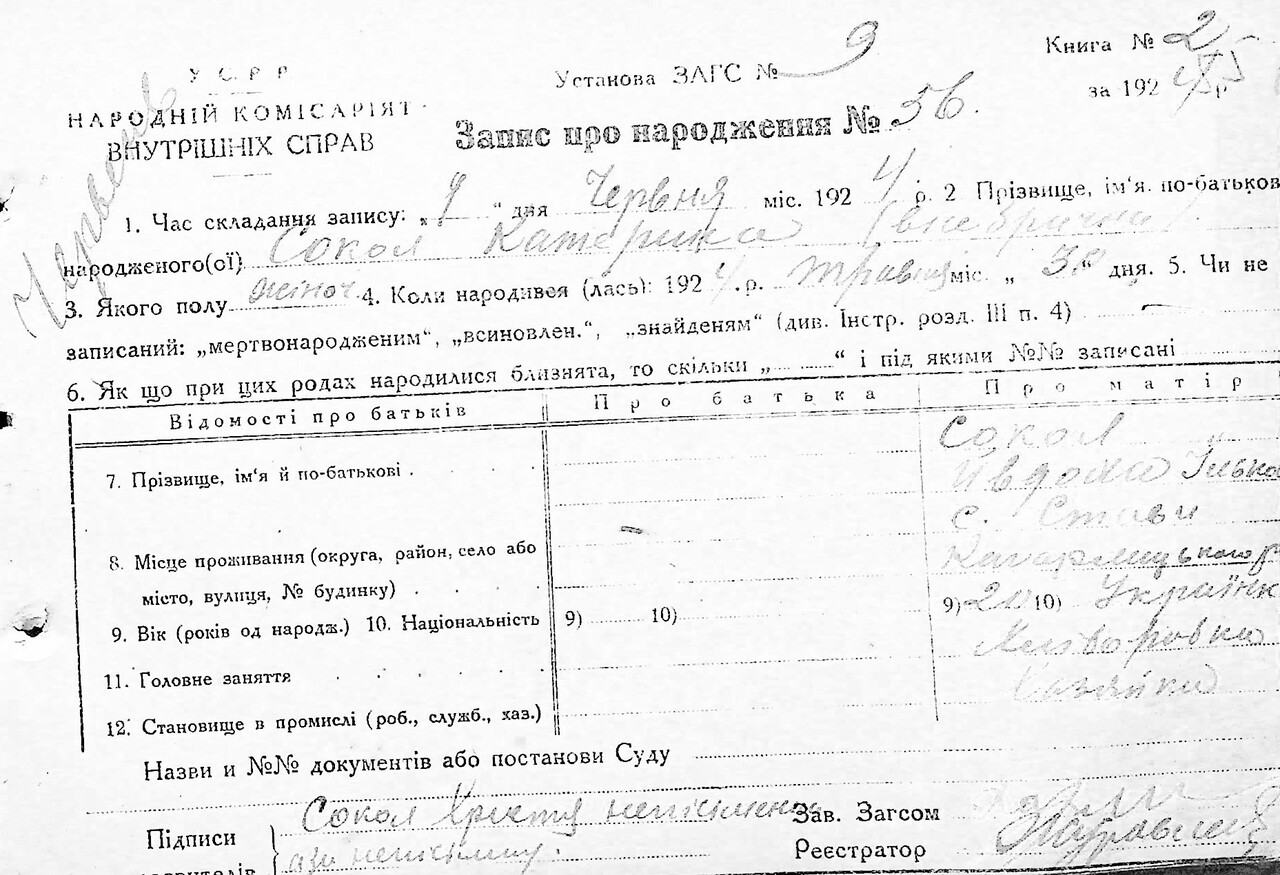 Червень
У С Р Р
НАРОДНІЙ КОМІСАРІЯТ
ВНУТРІШНІХ СПРАВ
Установа ЗАГС № 9
Книга № 2
за 192 р
Запис про народження № 56.
1. Час складання запису: „ 9 “ дня Червня міс. 192 4 р. 2 Прізвище, ім'я. по-батьков
народженого(ої) Сокол Катерина (внебрачна)
3. Якого полу жіноч. 4. Коли народився (лась): 192 4. р. травня міс. „ 30 “ дня. 5. Чи не
записаний: „мертвонародженим“, „всиновлен.“, „знайденям“ (див. Інстр. розд. III п. 4)
6. Як що при цих родах народилися близнята, то скільки „ “ і під якими №№ записані
Відомості про батьків Про батька Про матір
7. Прізвище, ім'я й по-батькові . Сокол
Ивдоха Ілько
8. Місце проживання (округа, район, село або с. Стави
місто, вулиця, № будинку) Кагарлицького р
9. Вік (років од народж.) 10. Національність 9) 10) 9) 20 10) Українк
11. Головне заняття
12. Становище в промислі (роб., служб., хаз.) Хазяйка
Назви и №№ документів або постанови Суду
Підписи Сокол Христя неписьменна Зав. Загсом
Реєстратор